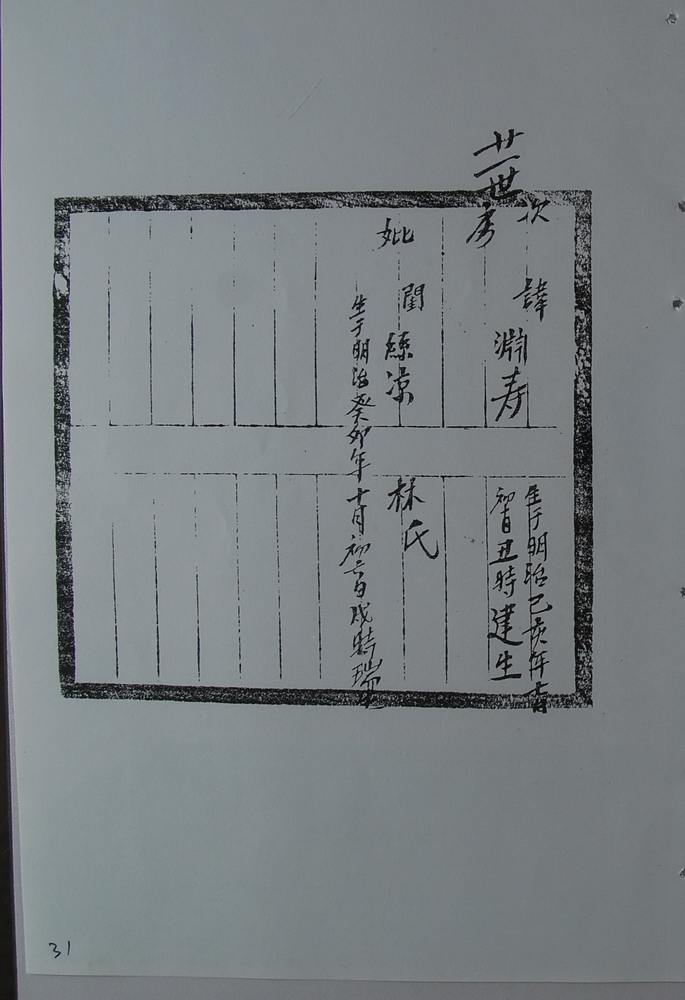 廿一世
次房
諱 淵寿
生于明治己亥年十一月
初一日丑時建生
妣 閨 綀凉 林氏
生于明治癸卯年十月初六日戌時瑞
31